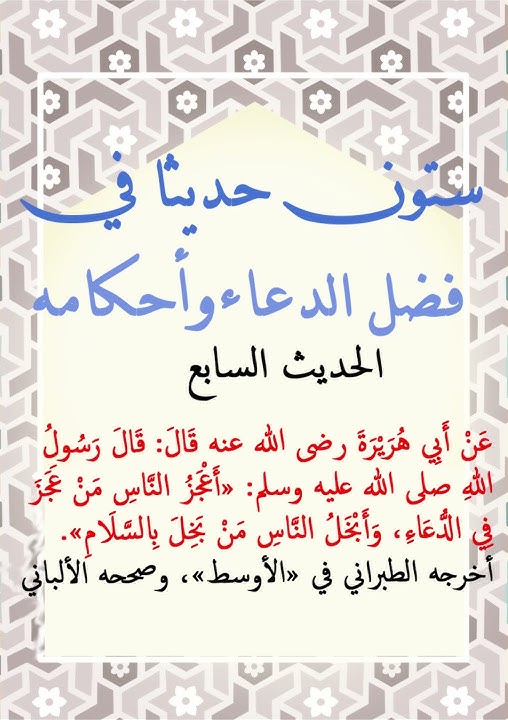 ستون حديثا في
فضل الدعاء وأحكامه
الحديث السابع
عَنْ أَبِي هُرَيْرَةَ رضى الله عنه قَالَ: قَالَ رَسُولُ
اللهِ صلى الله عليه وسلم: «أَعْجَزُ النَّاسِ مَنْ عَجَزَ
فِي الدُّعَاءِ، وَأَبْخَلُ النَّاسِ مَنْ بَخِلَ بِالسَّلَامِ».
أخرجه الطبراني في «الأوسط»، وصححه الألباني